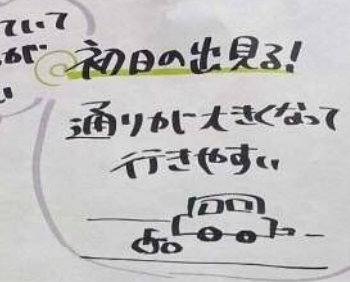 ていて
初日の出見る!
通りが大きくなって
行きやすい